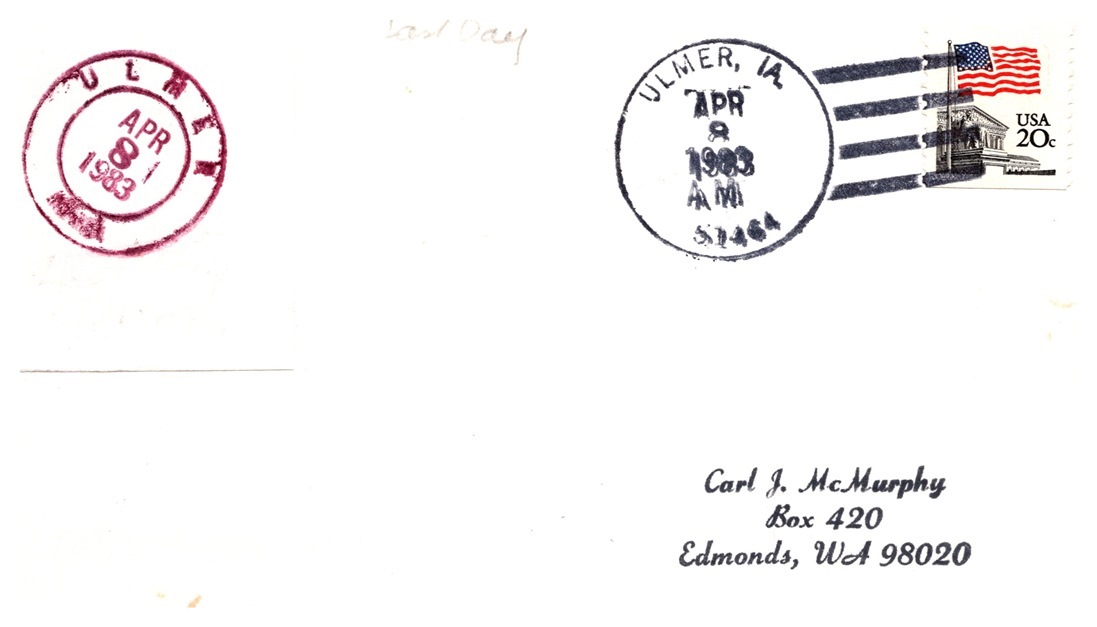 Last Day
ULMER
APR
8
1983
ULMER, IA
APR
8
1983
AM
USA
20c
Carl J. McMurphy
Box 420
Edmonds, WA 98020